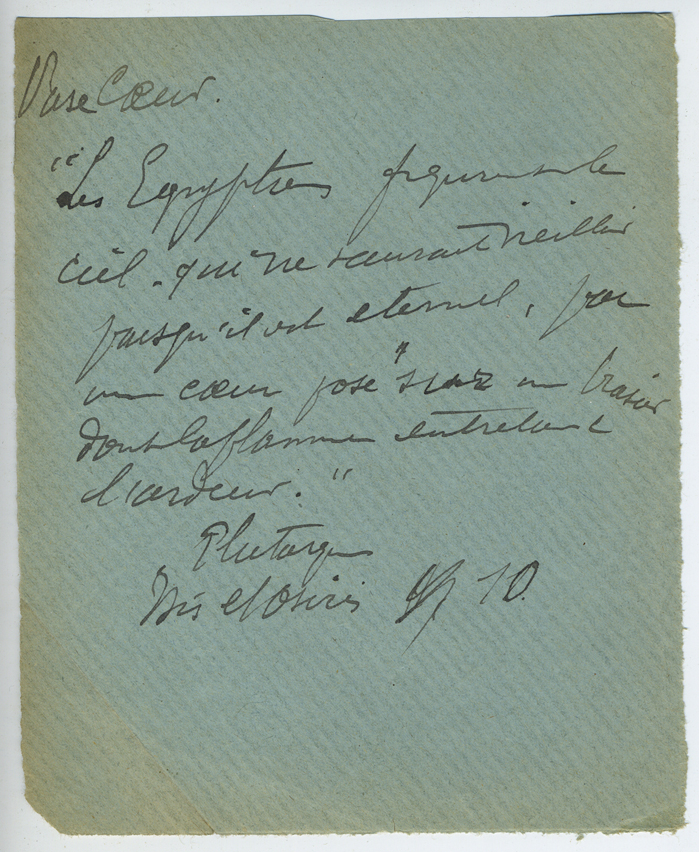 Vase Cœur.
"Les Egyptiens figurent le
ciel, qui ne saurait vieillir
puisqu'il est eternel, par
un cœur posé sur un brasier
dont la flamme entretient
l'ardeur."
Plutarque
Isis et Osiris 10.